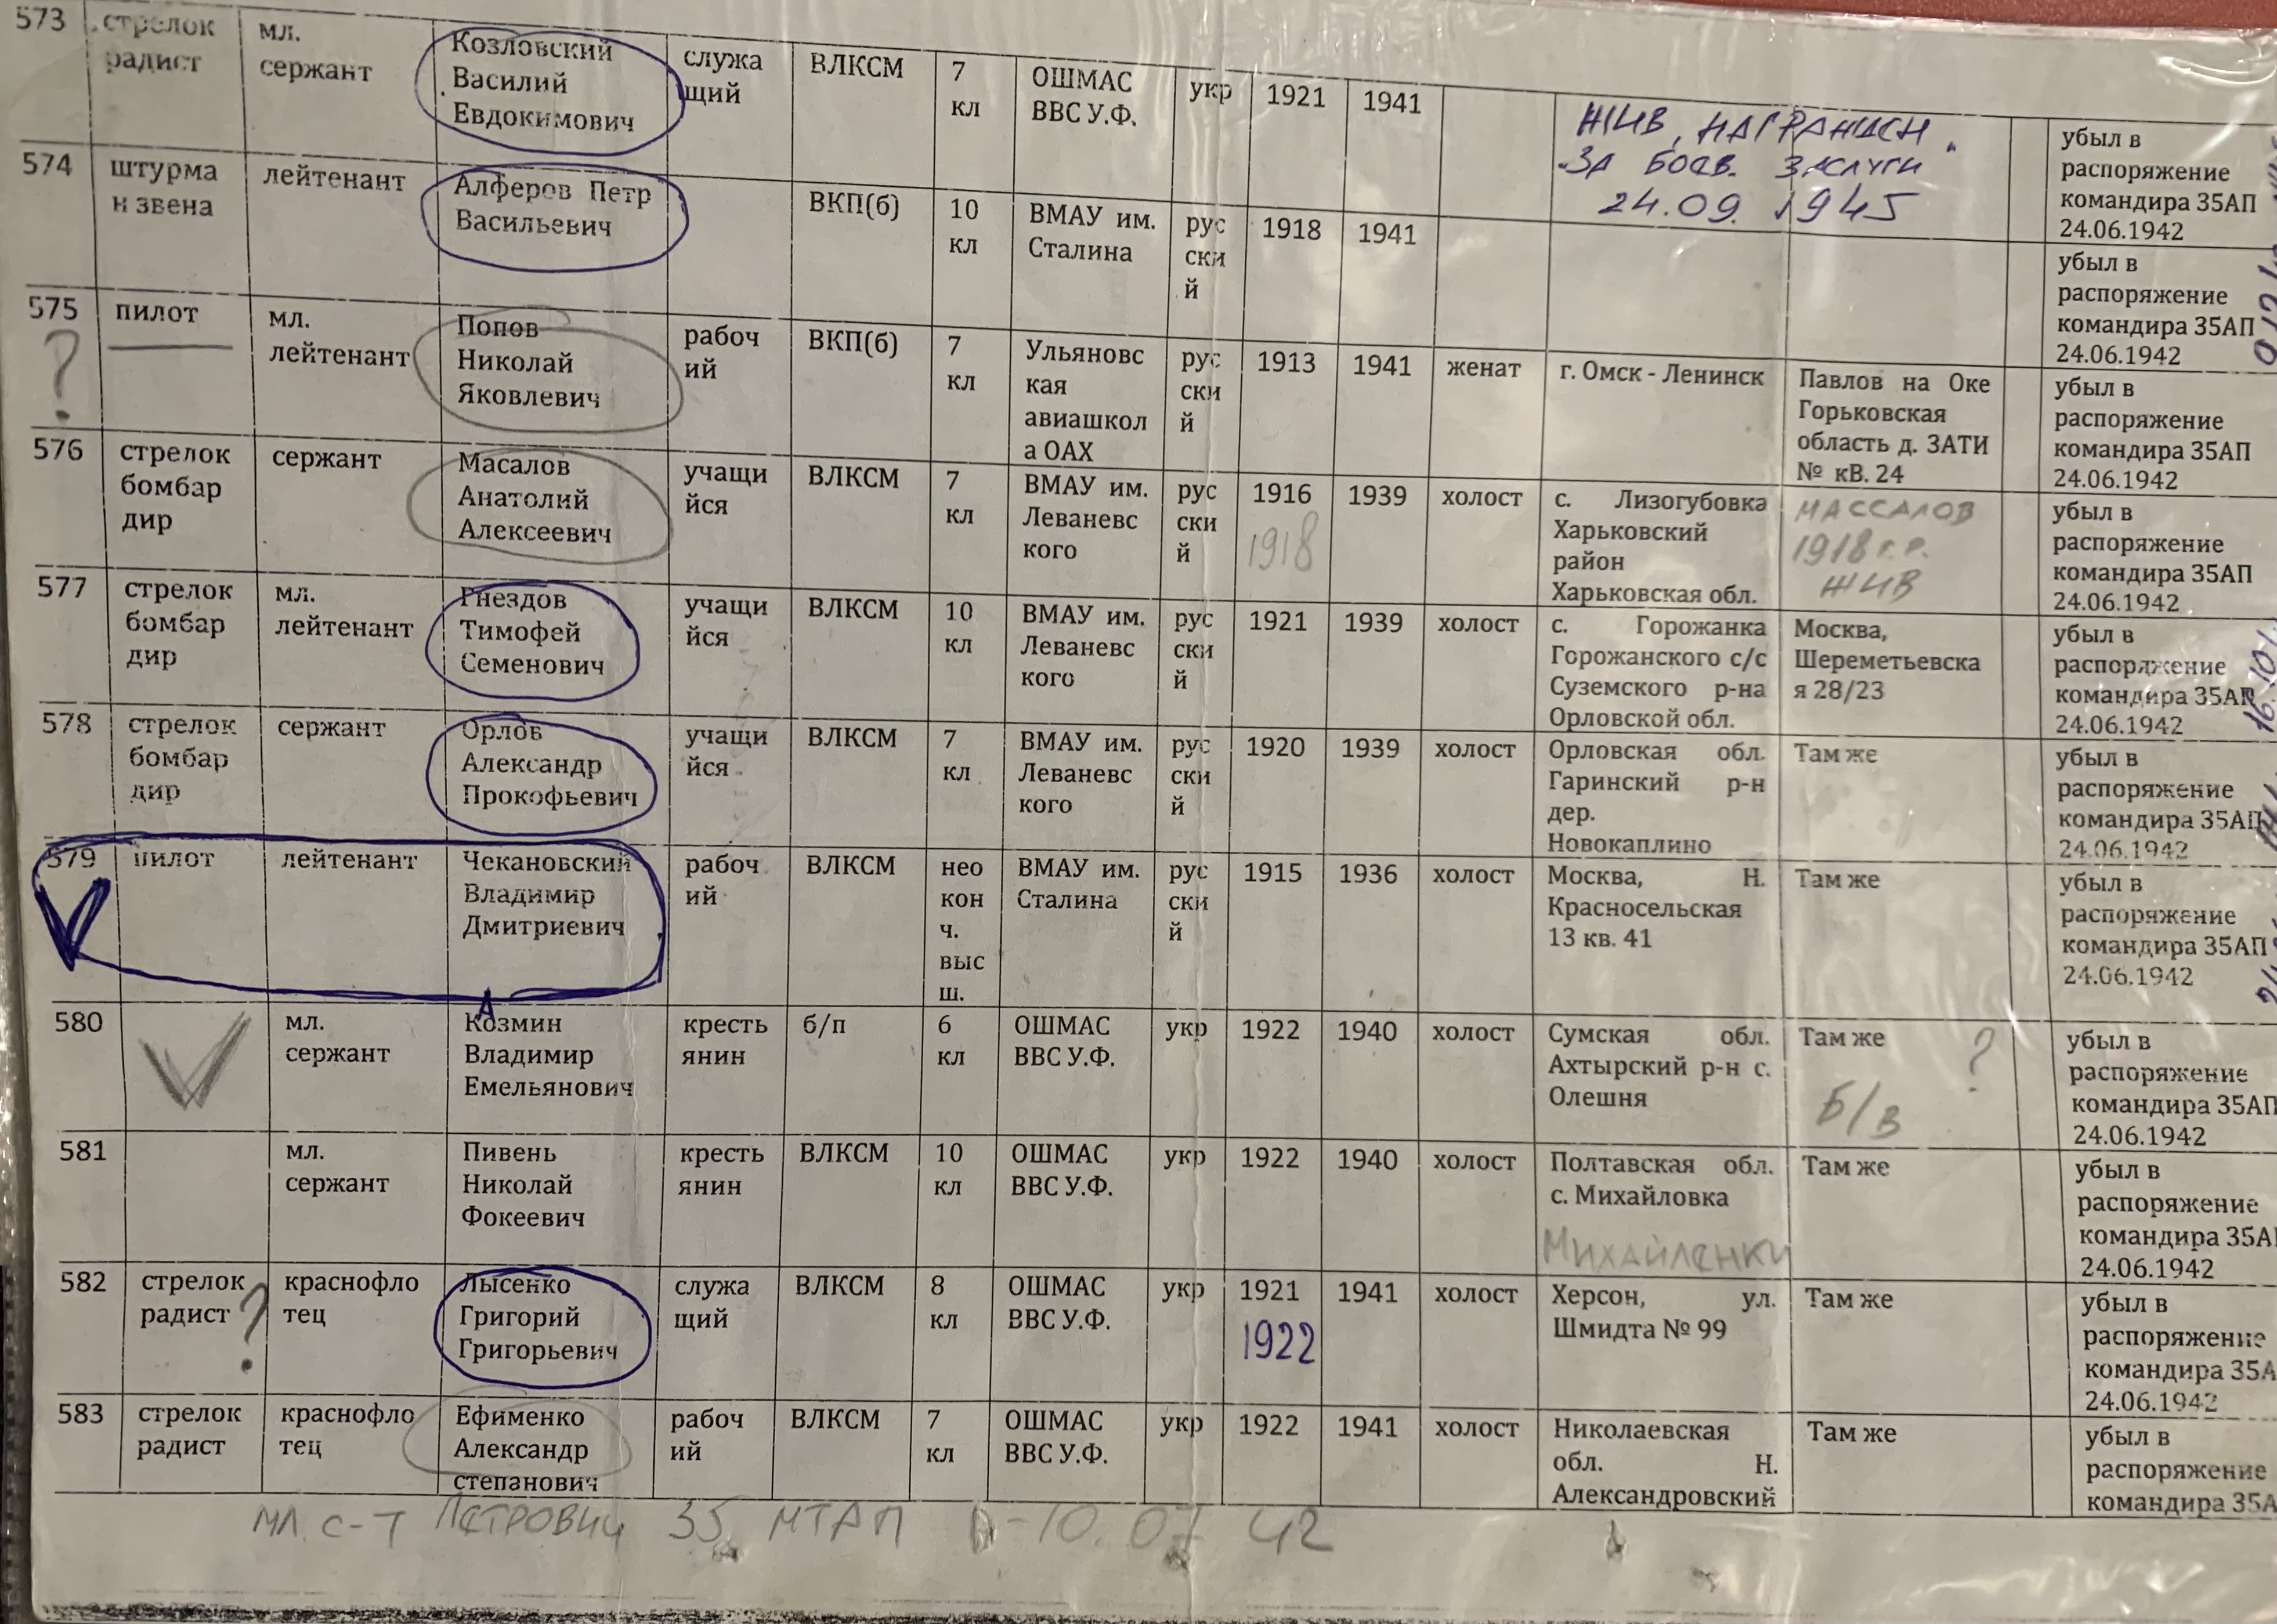 573
стрелок
радист
мл.
сержант
Козловский
Василий
Евдокимович
служа
щий
ВЛКСМ
7
кл
ОШМАС
ВВС У.Ф.
укр
1921
1941
ЖИВ, НАГРАЖДЕН
ЗА БОЕВ. ЗАСЛУГИ
24.09. 1945
убыл в
распоряжение
командира 35АП
24.06.1942
574
штурма
н звена
лейтенант
Алферов Петр
Васильевич
ВКП(б)
10
кл
ВМАУ им.
Сталина
рус
ски
й
1918
1941
убыл в
распоряжение
командира 35АП
24.06.1942
575
?
пилот
мл.
лейтенант
Попов
Николай
Яковлевич
рабоч
ий
ВКП(б)
7
кл
Ульяновс
кая
авиашкол
а ОАХ
рус
ски
й
1913
1941
женат
г. Омск - Ленинск
Павлов на Оке
Горьковская
область д. ЗАТИ
№ кВ. 24
убыл в
распоряжение
командира 35АП
24.06.1942
576
стрелок
бомбар
дир
сержант
Масалов
Анатолий
Алексеевич
учащи
йся
ВЛКСМ
7
кл
ВМАУ им.
Леваневс
кого
рус
ски
й
1916
1918
1939
холост
с. Лизогубовка
Харьковский
район
Харьковская обл.
МАССАЛОВ
1918 г.р.
ЖИВ
убыл в
распоряжение
командира 35АП
24.06.1942
577
стрелок
бомбар
дир
мл.
лейтенант
Гнездов
Тимофей
Семенович
учащи
йся
ВЛКСМ
10
кл
ВМАУ им.
Леваневс
кого
рус
ски
й
1921
1939
холост
с. Горожанка
Горожанского с/с
Суземского р-на
Орловской обл.
Москва,
Шереметьевска
я 28/23
убыл в
распоряжение
командира 35АП
24.06.1942
578
стрелок
бомбар
дир
сержант
Орлов
Александр
Прокофьевич
учащи
йся
ВЛКСМ
7
кл
ВМАУ им.
Леваневс
кого
рус
ски
й
1920
1939
холост
Орловская обл.
Гаринский р-н
дер.
Новокаплино
Там же
убыл в
распоряжение
командира 35АП
24.06.1942
579
пилот
лейтенант
Чекановский
Владимир
Дмитриевич
рабоч
ий
ВЛКСМ
нео
кон
ч.
выс
ш.
ВМАУ им.
Сталина
рус
ски
й
1915
1936
холост
Москва, Н.
Красносельская
13 кв. 41
Там же
убыл в
распоряжение
командира 35АП
24.06.1942
580
мл.
сержант
А
Козмин
Владимир
Емельянович
кресть
янин
б/п
6
кл
ОШМАС
ВВС У.Ф.
укр
1922
1940
холост
Сумская обл.
Ахтырский р-н с.
Олешня
Там же
?
Б/В
убыл в
распоряжение
командира 35АП
24.06.1942
581
мл.
сержант
Пивень
Николай
Фокеевич
кресть
янин
ВЛКСМ
10
кл
ОШМАС
ВВС У.Ф.
укр
1922
1940
холост
Полтавская обл.
с. Михайловка
МИХАЙЛЕНКИ
Там же
убыл в
распоряжение
командира 35А
24.06.1942
582
стрелок
радист
?
краснофло
тец
Лысенко
Григорий
Григорьевич
служа
щий
ВЛКСМ
8
кл
ОШМАС
ВВС У.Ф.
укр
1921
1922
1941
холост
Херсон, ул.
Шмидта № 99
Там же
убыл в
распоряжение
командира 35А
24.06.1942
583
стрелок
радист
краснофло
тец
Ефименко
Александр
степанович
рабоч
ий
ВЛКСМ
7
кл
ОШМАС
ВВС У.Ф.
укр
1922
1941
холост
Николаевская
обл. Н.
Александровский
Там же
убыл в
распоряжение
командира 35А
МЛ. С-Т ПЕТРОВИЧ 35 МТАП 10.07 42